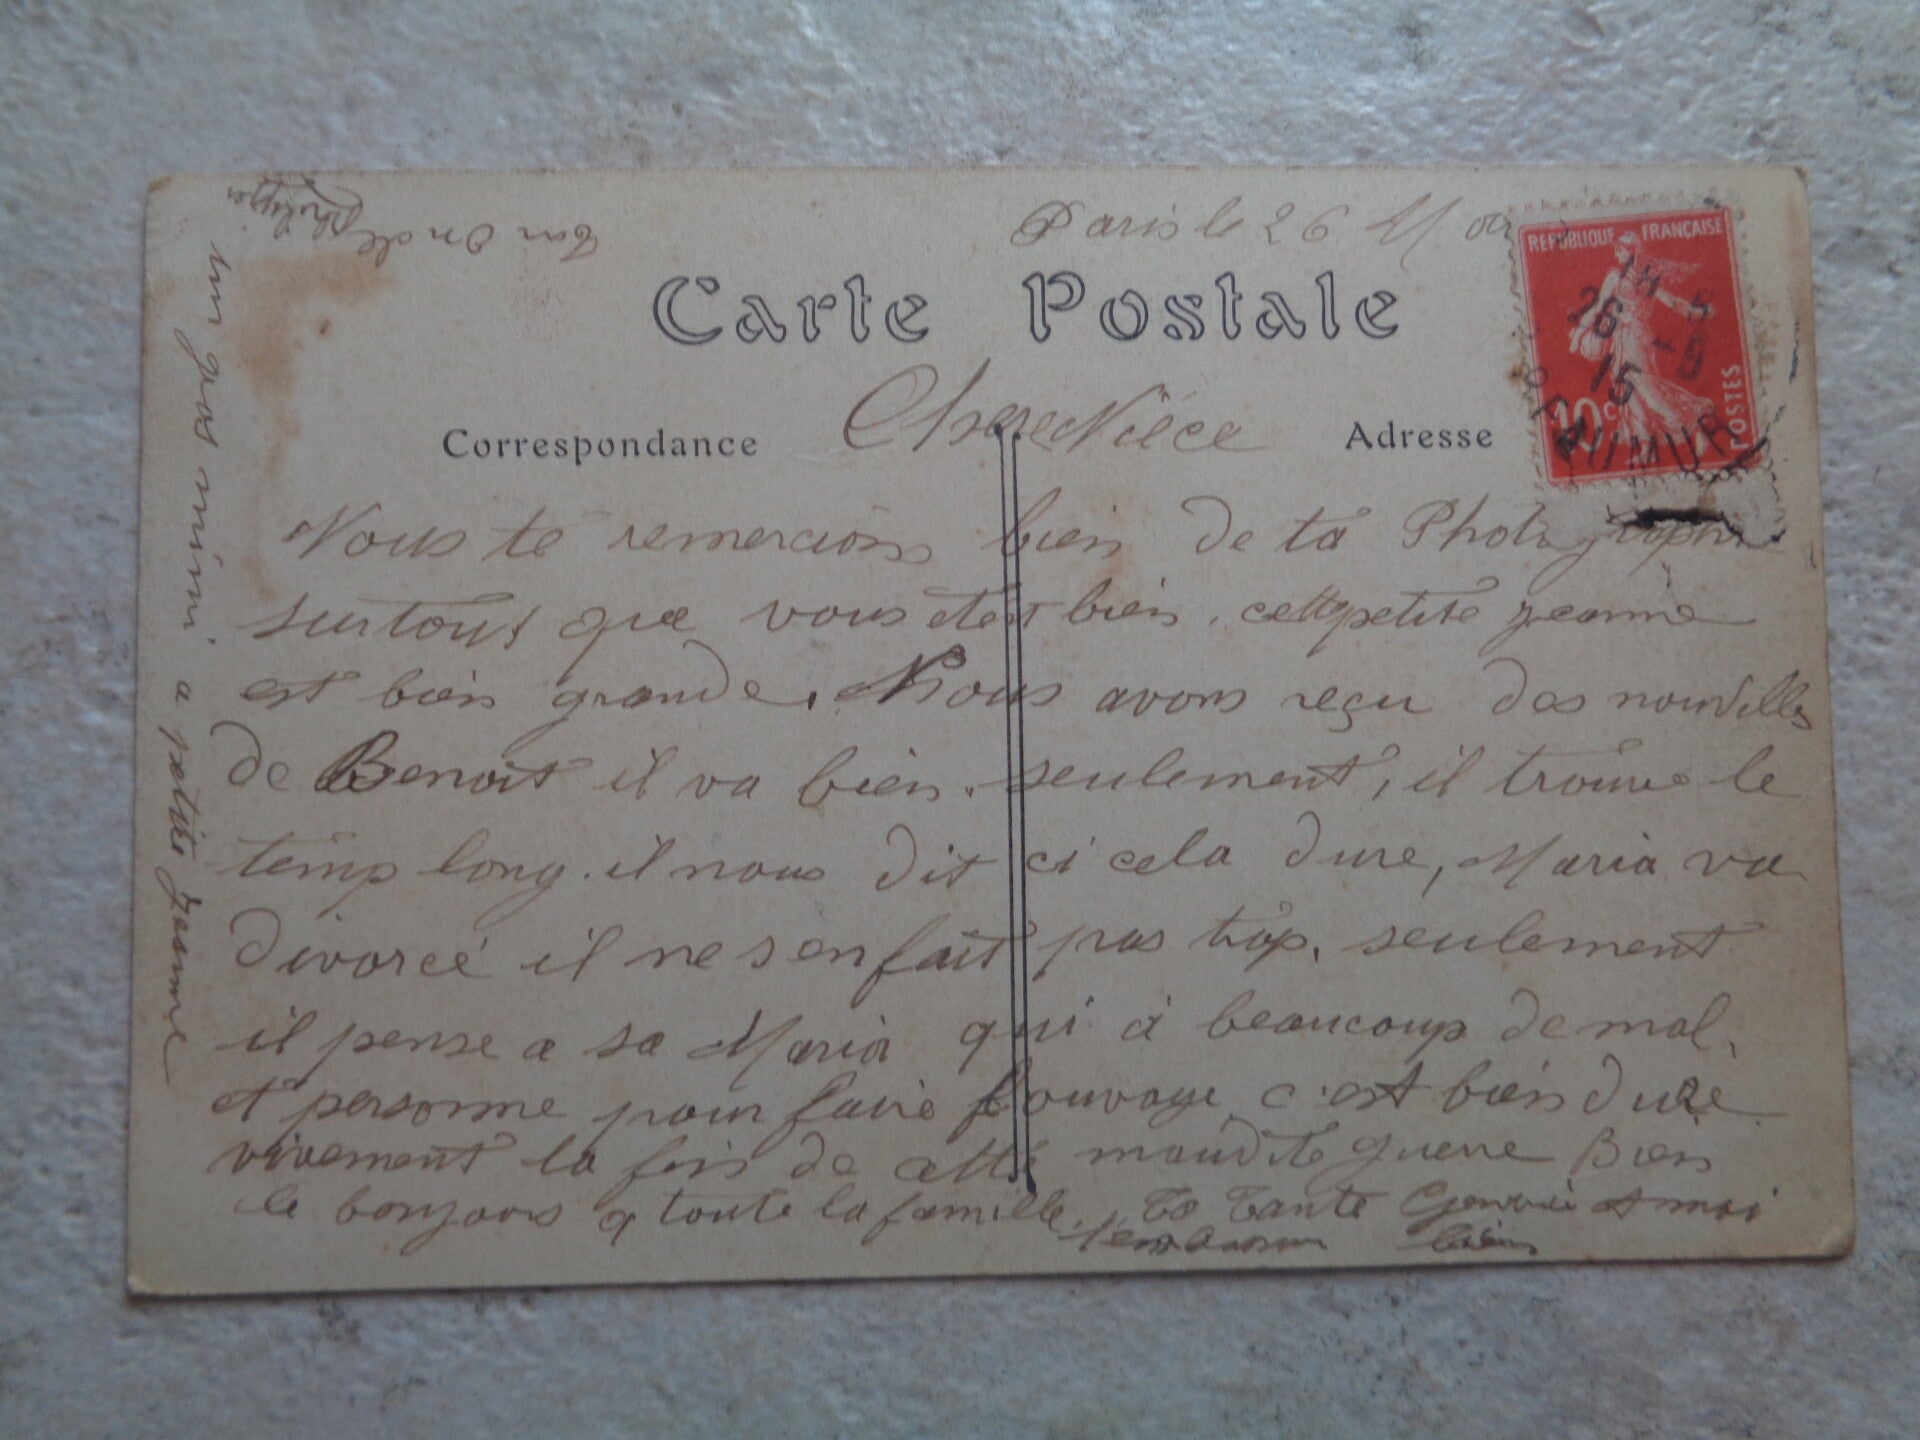 Paris le 26 M
REPUBLIQUE FRANÇAISE
10c
POSTES
26 - 5
15
REAUMUR
Carte Postale
Correspondance
Adresse
Chere Niéce
Nous te remercions bien de ta Photographie
surtout que vous étes bien. cette petite Jeanne
est bien grande. Nous avons reçu des nouvelles
de Benoit il va bien. seulement, il trouve le
temp long. il nous dit ci cela dure, Maria va
divorcé il ne s'en fait pas trop. seulement
il pense a sa Maria qui à beaucoup de mal,
et personne pour faire l'ouvrage c'est bien dure
vivement la fin de cette maudite guerre Bien
le bonjours a toute la famille. Ta Tante et moi
t'embrassons bien
Ton Oncle
Philippe
un gros mimi a petite Jeanne